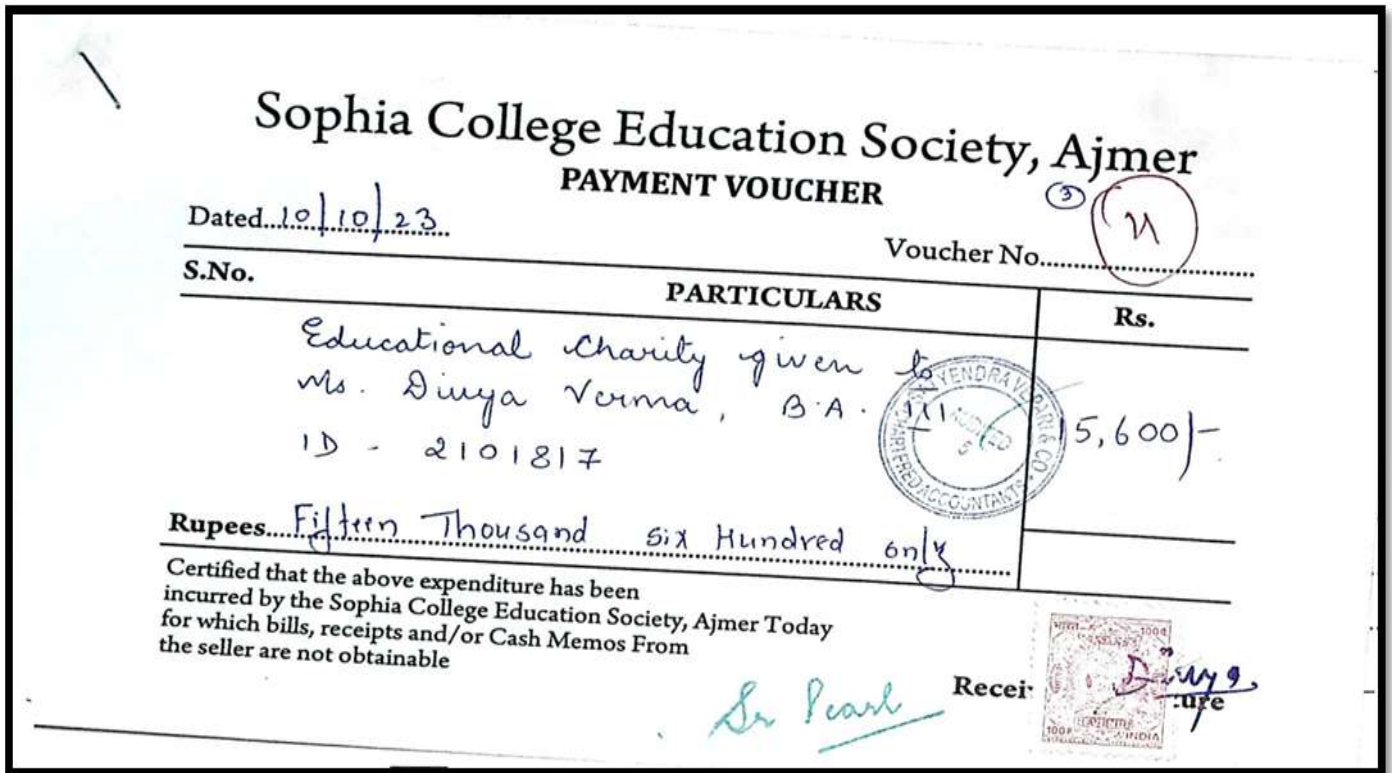 Sophia College Education Society, Ajmer
PAYMENT VOUCHER
3
Dated...10/10/23...
Voucher No.....
S.No. PARTICULARS Rs.
Educational Charity given to
Ms. Divya Verma, B.A. III
ID - 2101817
15,600/-
CHARTERED ACCOUNTANTS
AUDITED
Rupees...Fifteen Thousand Six Hundred only
Certified that the above expenditure has been
incurred by the Sophia College Education Society, Ajmer Today
for which bills, receipts and/or Cash Memos From
the seller are not obtainable
Sr Pearl
Divya
INDIA